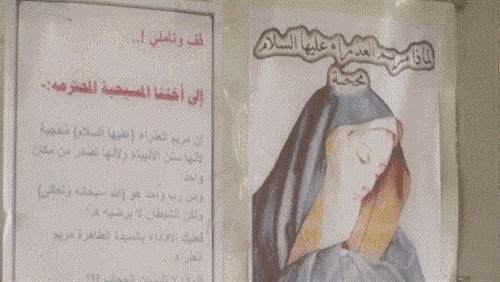 قف وتأملي !..
إلى أختنا المسيحية المحترمه:-
إن مريم العذراء (عليها السلام) محجبة
لأنها سنن الأنبياء ولأنها تصدر من مكان
واحد
ومن رب واحد هو (الله سبحانه وتعالى)
ولكن الشيطان لا يرضيه هذا
فعليك الاقتداء بالسيدة الطاهرة مريم
العذراء
الحجاب !!؟
لماذا مريم العذراء عليها السلام
محجبة